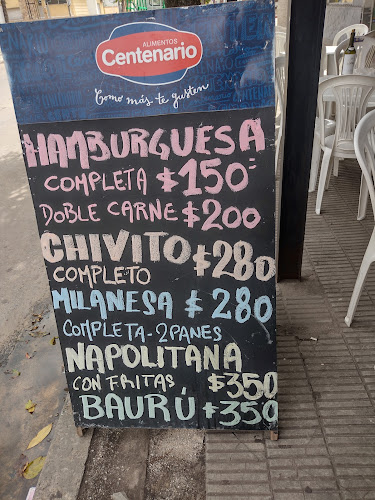 ALIMENTOS
Centenario
Como más te gusten
HAMBURGUESA
COMPLETA $150=
DOBLE CARNE $200
CHIVITO
COMPLETO $280
MILANESA $280
COMPLETA-2 PANES
NAPOLITANA
CON FRITAS $350
BAURÚ $350